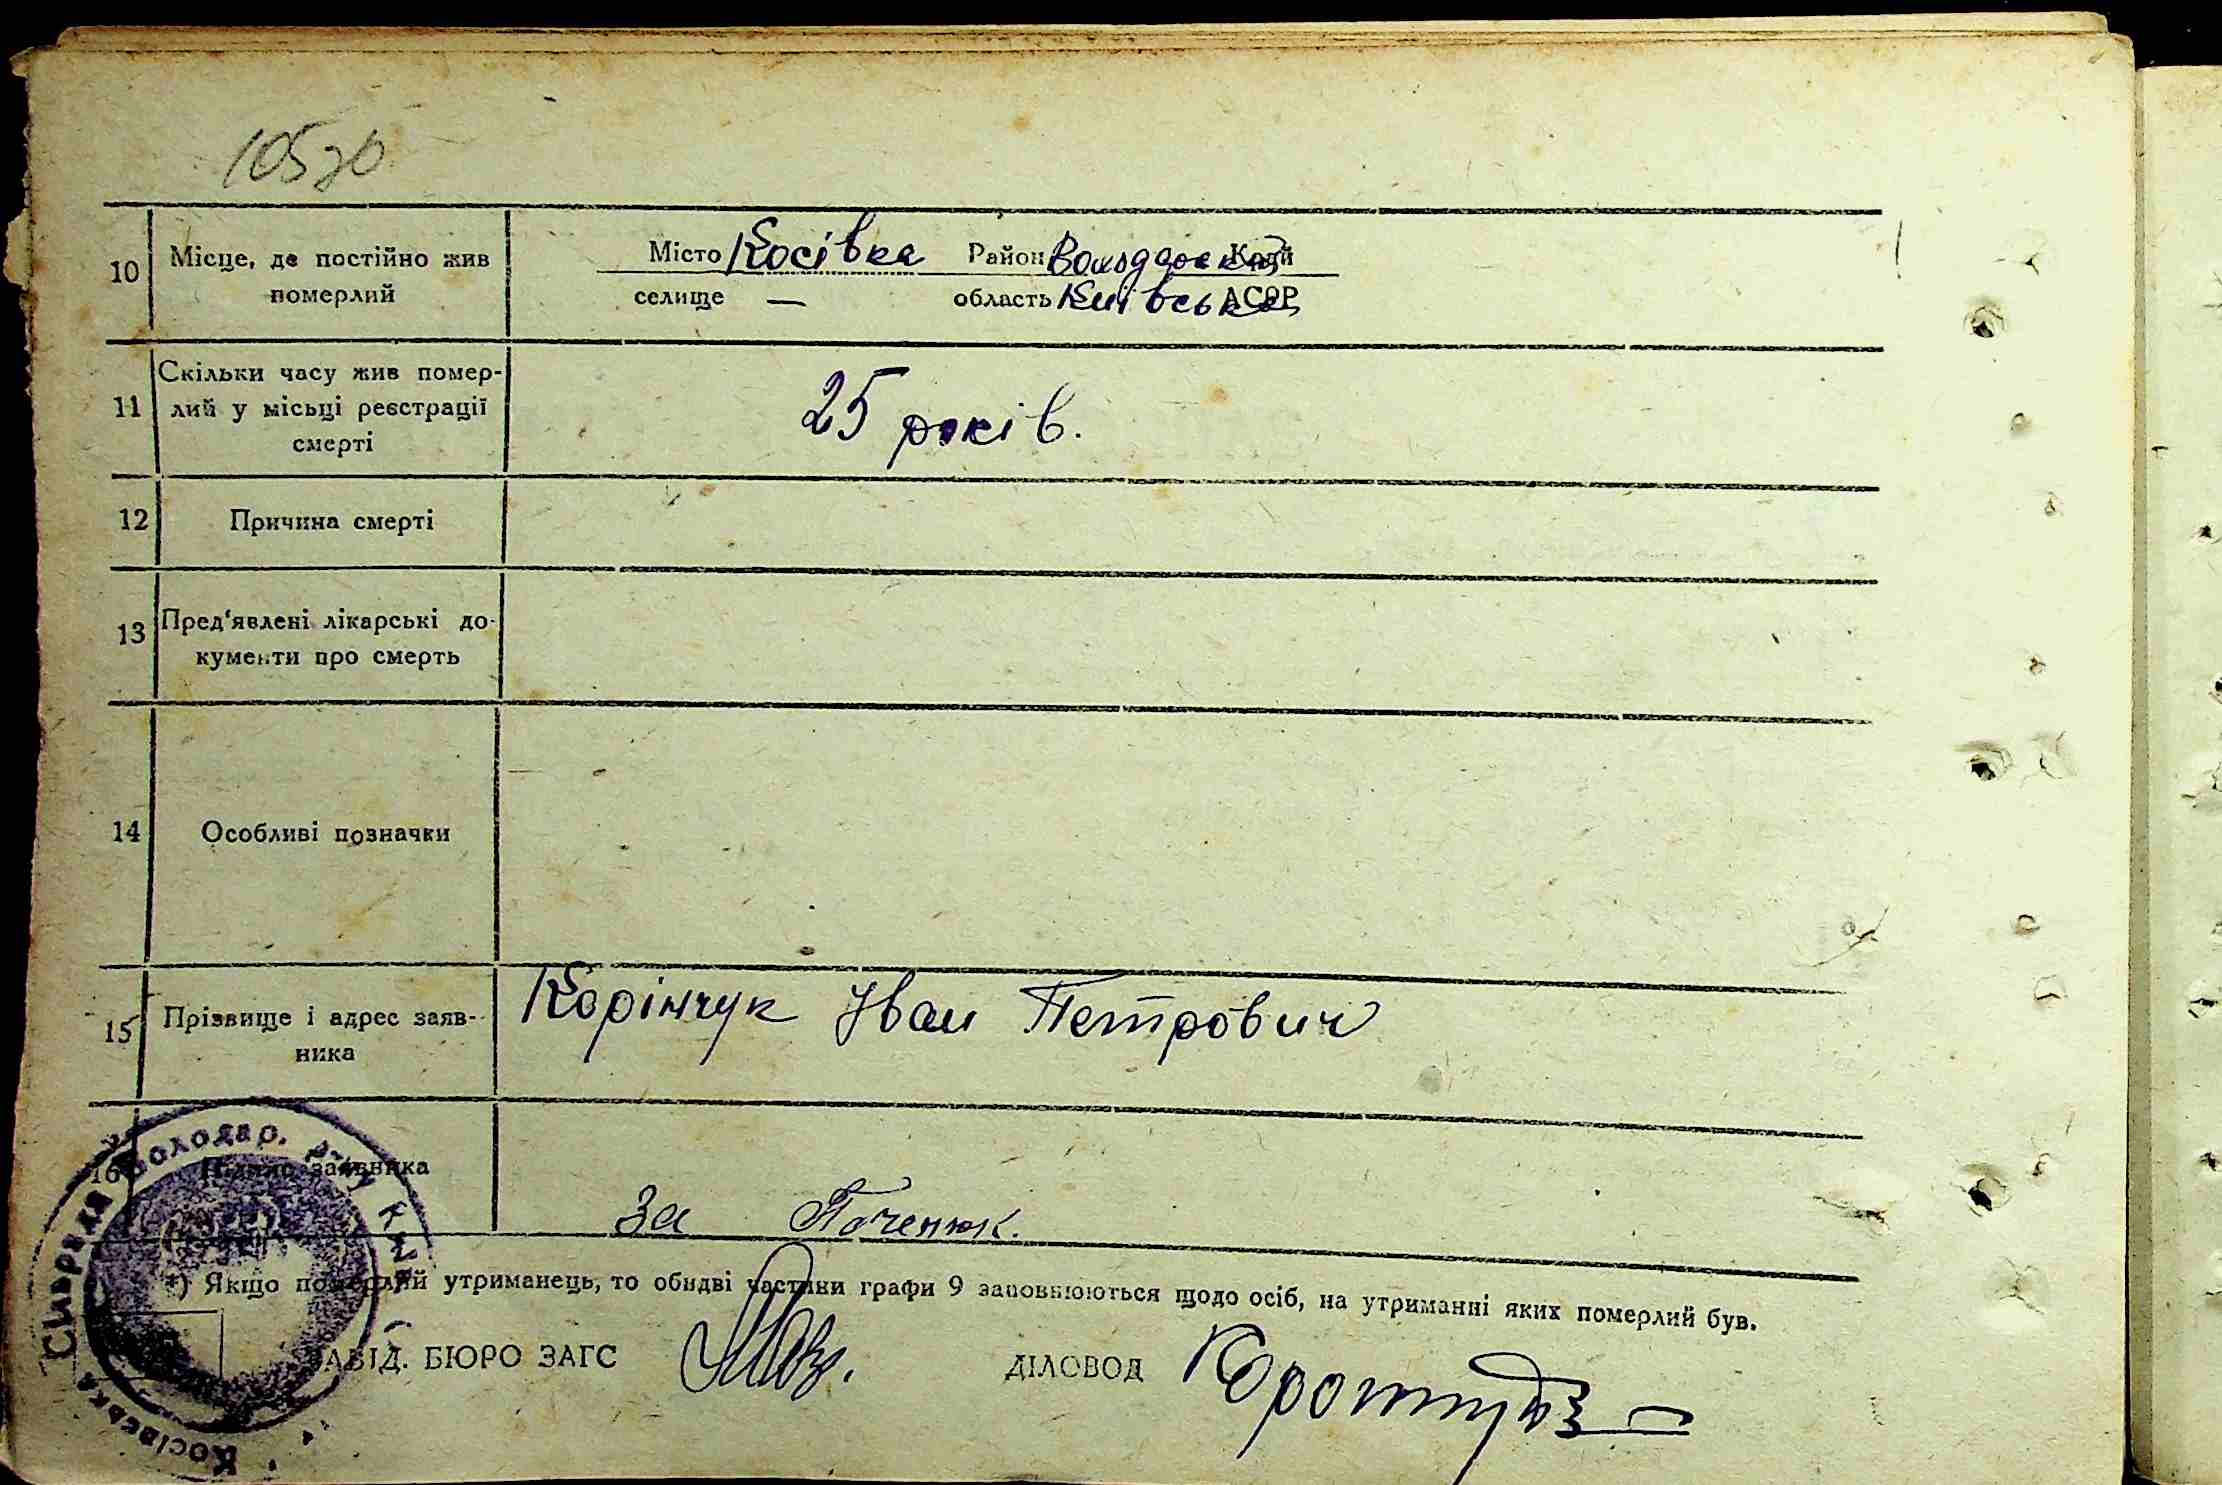 105зв
10 Місце, де постійно жив померлий
Місто Косівка Район Володарськ Край
селище — область Київська АСРР
11 Скільки часу жив помер-
лий у місьці реєстрації
смерті
25 років.
12 Причина смерті
13 Пред'явлені лікарські до-
кументи про смерть
14 Особливі позначки
15 Прізвище і адрес заяв-
ника
Корінчук Іван Петрович
16 Підпис заявника
За
*) Якщо померлий утриманець, то обидві частини графи 9 заповнюються щодо осіб, на утриманні яких померлий був.
ЗАВІД. БЮРО ЗАГС
ДІЛОВОД
Косівська Сільрада Володар. р-ну Київ